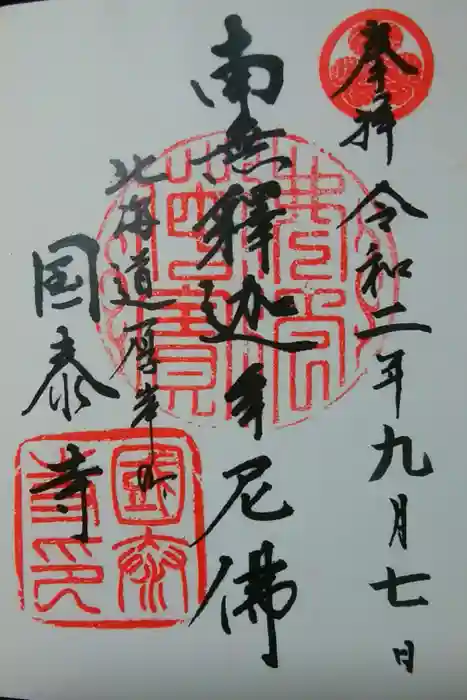 奉拝 令和二年九月七日
南無釋迦牟尼佛
北海道厚岸
国泰寺
國泰寺印